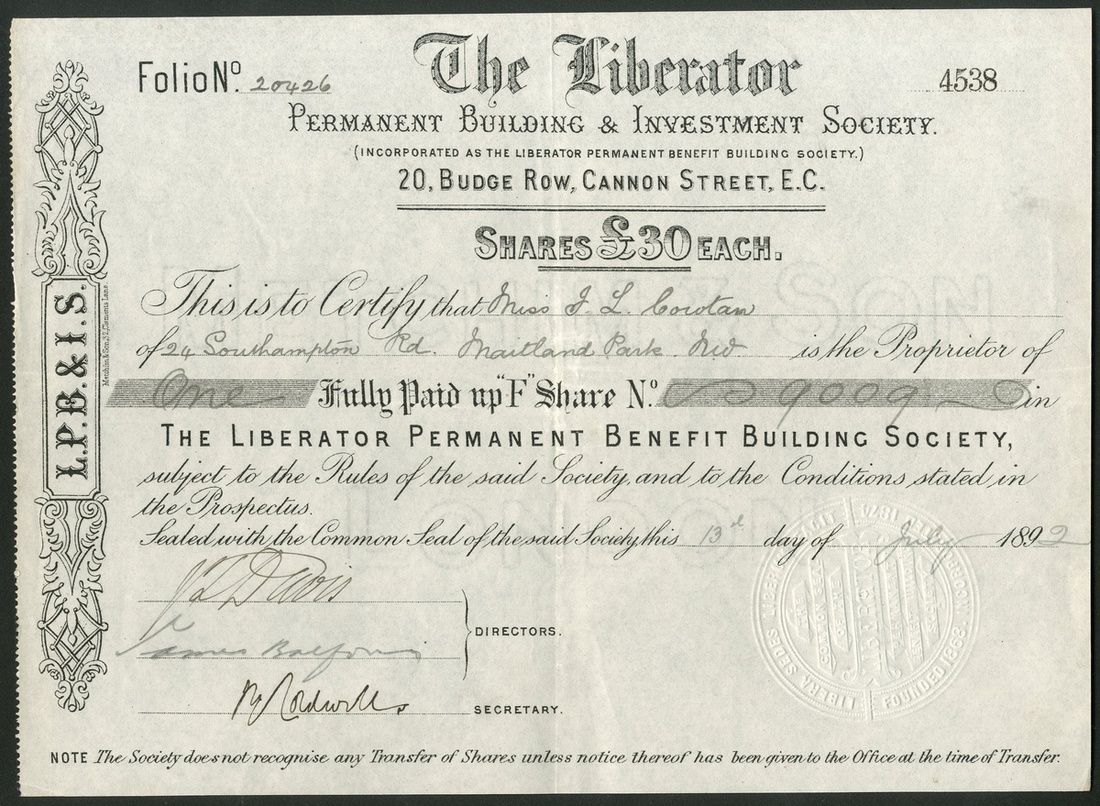 Folio No. 20426
The Liberator
4538
Permanent Building & Investment Society.
(INCORPORATED AS THE LIBERATOR PERMANENT BENEFIT BUILDING SOCIETY.)
20, Budge Row, Cannon Street, E.C.
Shares £30 each.
This is to Certify that Miss J. L. Cowtan
of 24 Southampton Rd. Maitland Park NW is the Proprietor of
One Fully Paid up "F" Share No. 9009 in
The Liberator Permanent Benefit Building Society,
subject to the Rules of the said Society, and to the Conditions stated in
the Prospectus.
Sealed with the Common Seal of the said Society, this 13d day of July 1892
Davis
James
DIRECTORS.
SECRETARY.
NOTE The Society does not recognise any Transfer of Shares unless notice thereof has been given to the Office at the time of Transfer.
L.P.B. & I.S.
FOUNDED 1868.